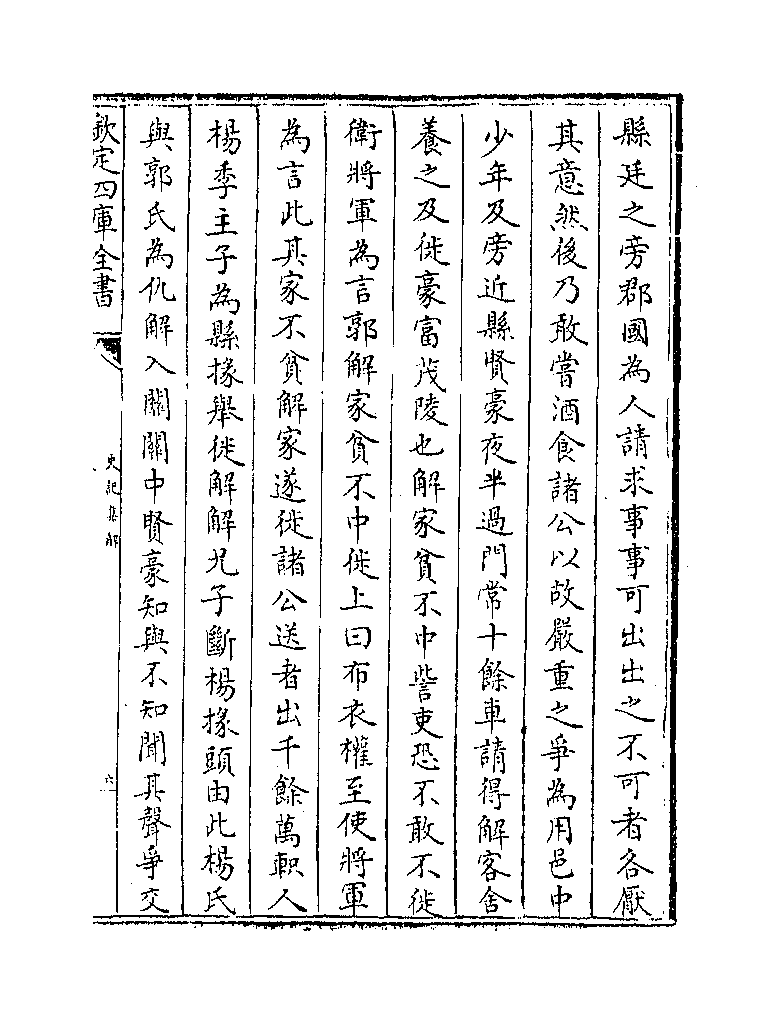 縣廷之旁郡國為人請求事事可出出之不可者各厭
其意然後乃敢嘗酒食諸公以故嚴重之爭為用邑中
少年及旁近縣賢豪夜半過門常十餘車請得解客舍
養之及徙豪富茂陵也解家貧不中訾吏恐不敢不徙
衛將軍為言郭解家貧不中徙上曰布衣權至使將軍
為言此其家不貧解家遂徙諸公送者出千餘萬軹人
楊季主子為縣掾舉徙解解兄子斷楊掾頭由此楊氏
與郭氏為仇解入關關中賢豪知與不知聞其聲爭交
欽定四庫全書
史記集解
六